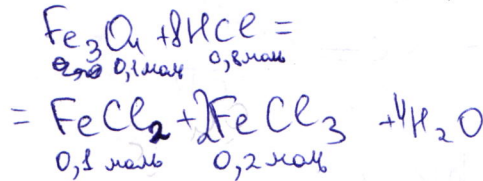 Fe₃O₄ + 8HCl =
0,1 моль 0,8 моль
= FeCl₂ + 2FeCl₃ + 4H₂O
0,1 моль 0,2 моль